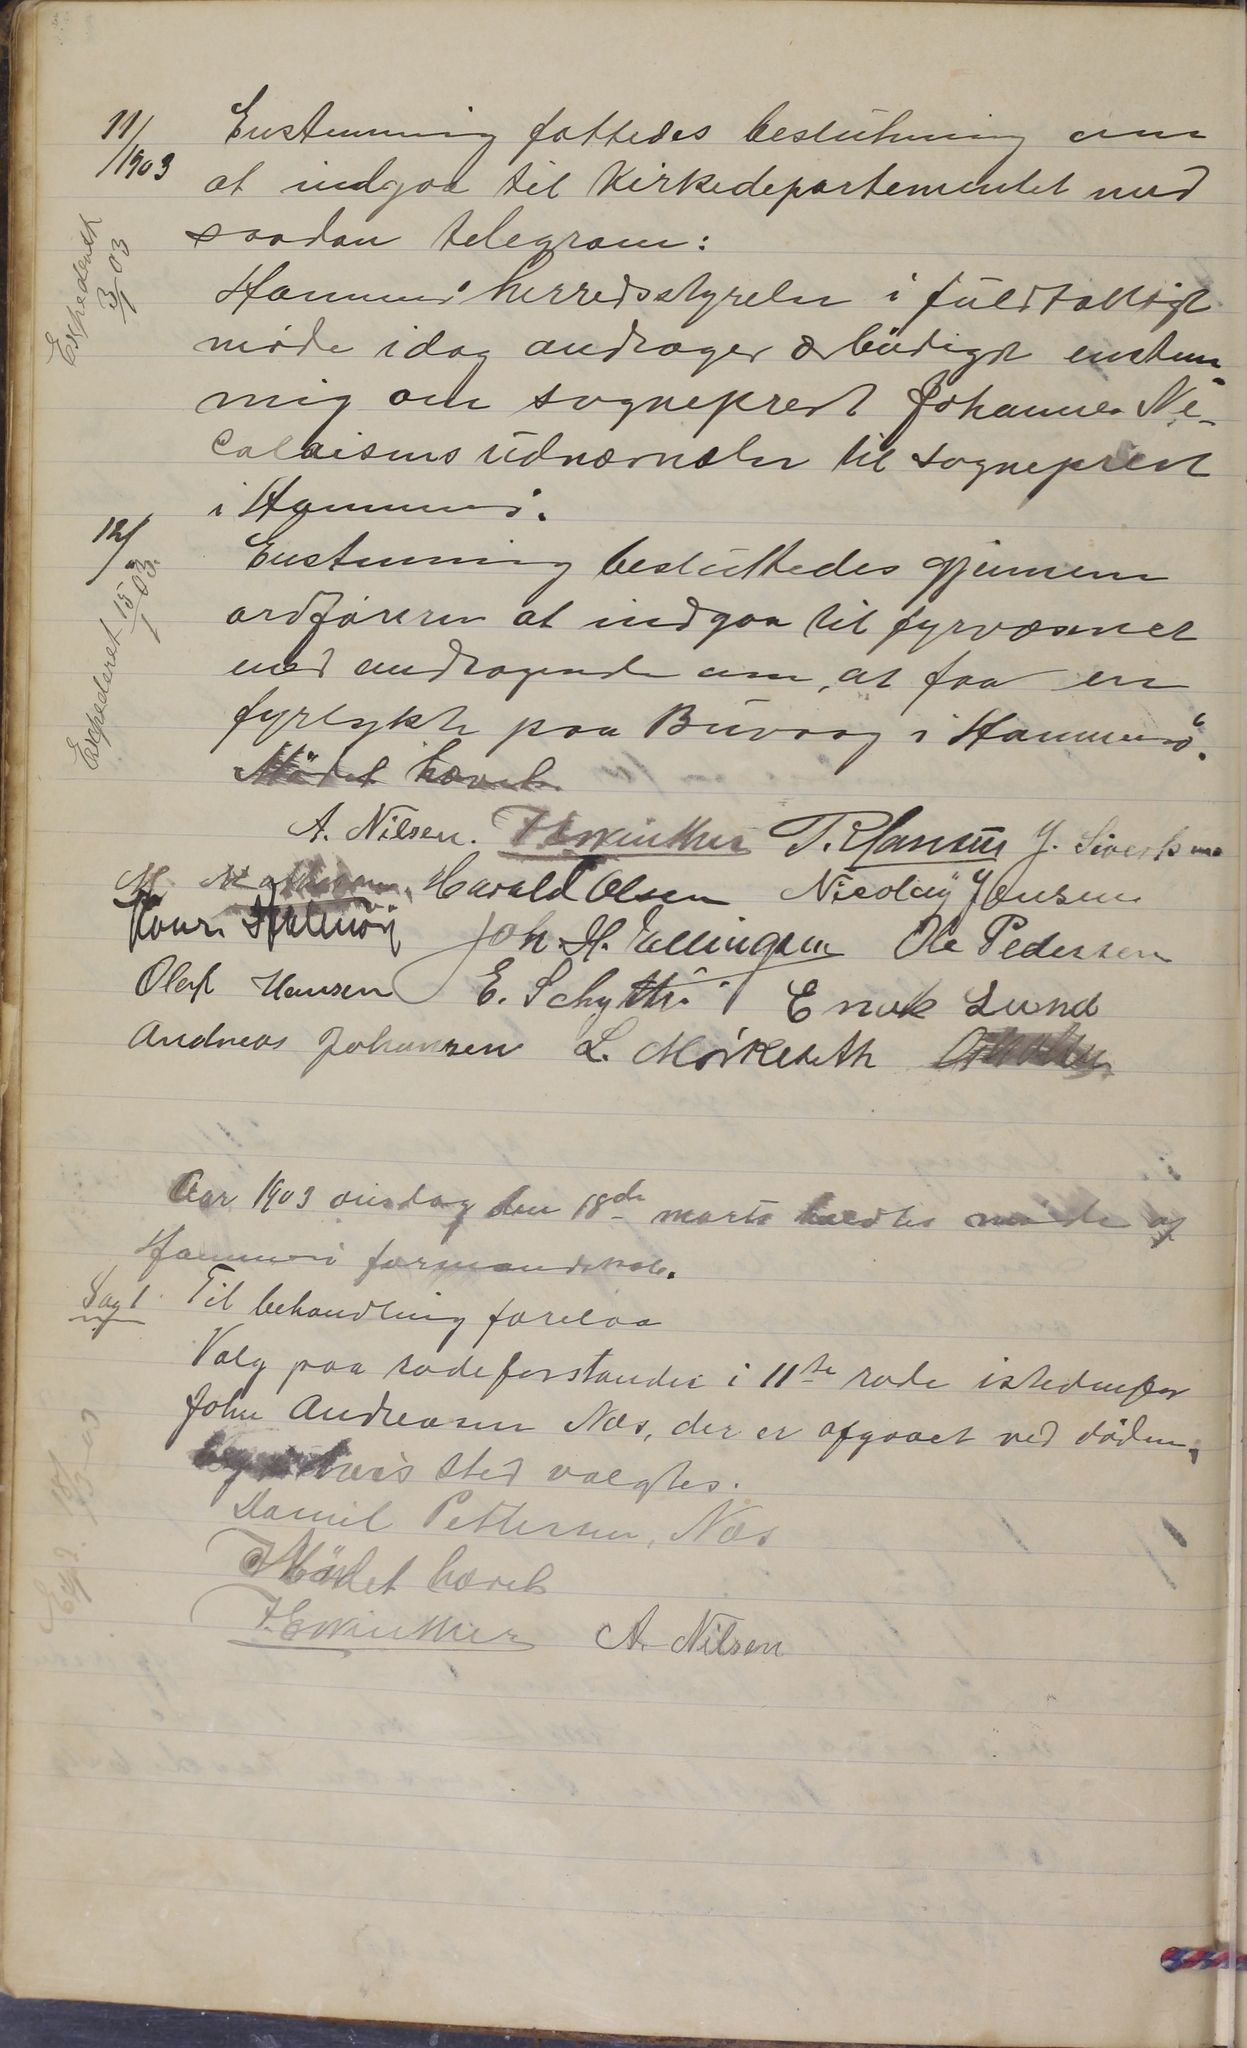 11/1903 Enstemmig fattedes beslutning om
at indgaa til Kirkedepartementet med
saadan telegram:
Expederet 3/1 03
Hammerø herredsstyrelse i fuldtalligt
møde idag andrager ærbødigst enstem-
mig om sogneprest Johannes Ni-
colaisens udnævnelse til sogneprest
i Hammerø.
12/ Enstemmig besluttedes gjennem
ordføreren at indgaa til fyrvæsenet
med andragende om, at faa en
fyrlygte paa Buvaag i Hammerø.
Expederet 15/1 03.
Mødet hævet
A. Nilsen. T. Hansen J. Sivertsen
M. Harald Olsen Nicolay Jensen
Joh. H. Ellingsen Ole Pedersen
Olaf Hansen E. Schytte Enok Lund
Andreas Johansen L. Mørkeseth
Aar 1903 onsdag den 18de marts holdtes møde af
Hammerø formandskab.
Sag 1 Til behandling forelaa
Valg paa rodeforstander i 11te rode istedenfor
John Andreasen Næs, der er afgaaet ved døden,
hvis sted valgtes.
Daniel Pettersen, Næs
Exp. 18/3 03
Mødet hævet
A. Nilsen